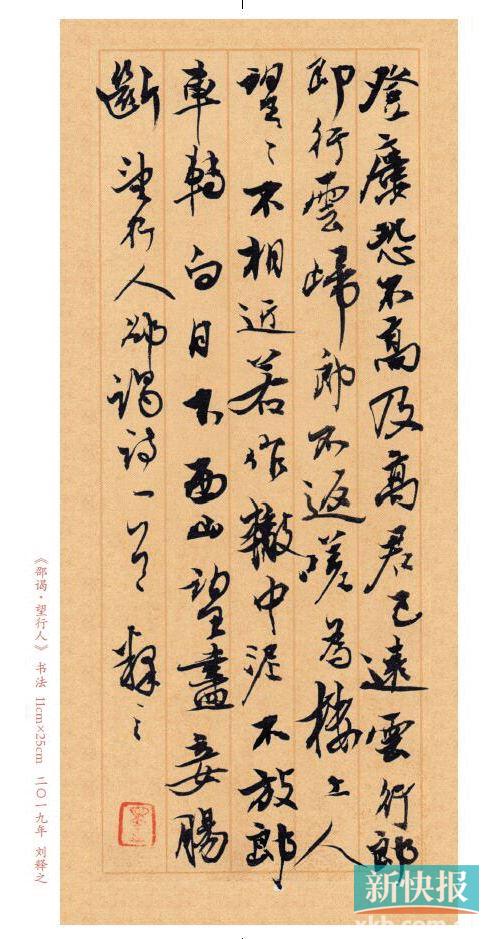 登廔恐不高及高君已遠雲行郎
即行雲歸郎不返嗟為樓上人
望〻不相近若作轍中泥不放郎
車轉白日下西山望盡妾腸
斷 望行人邵謁詩一首 釋之
《邵谒·望行人》 书法 11cm×25cm 二〇一九年 刘释之
新快报